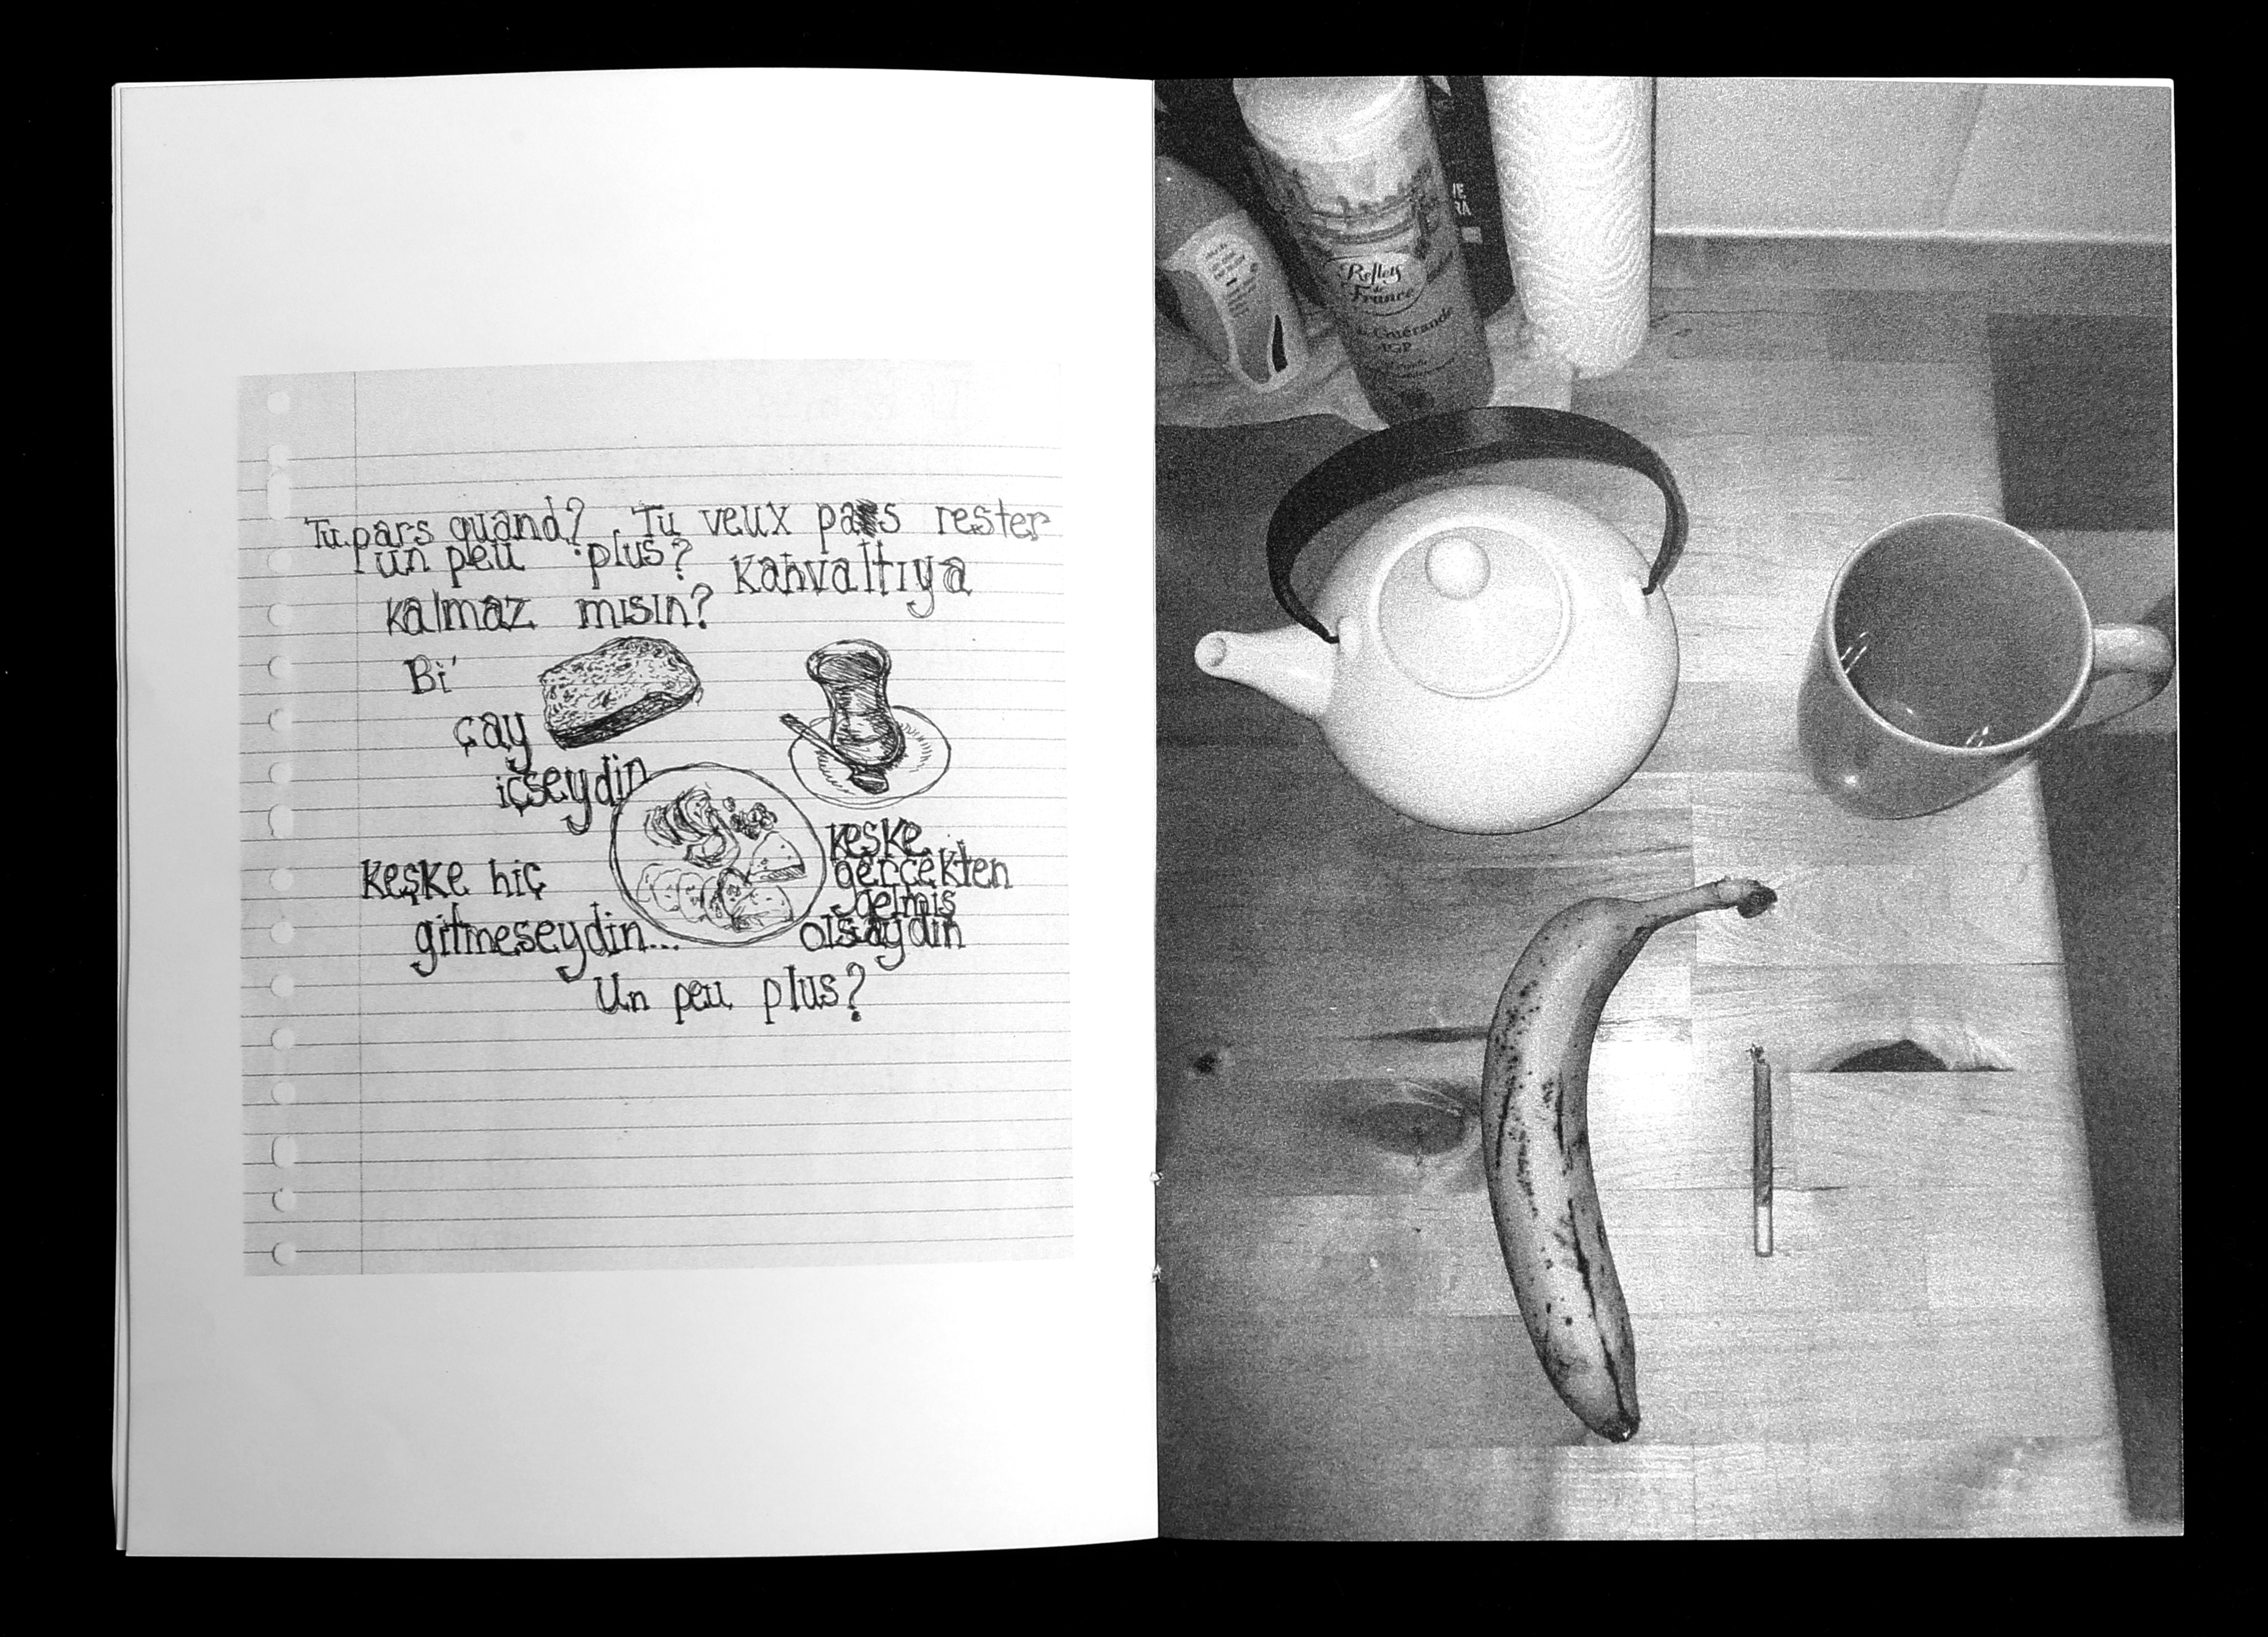 Tu pars quand? Tu veux pas rester
un peu plus? Kahvaltıya
kalmaz mısın?
Bi'
çay
içseydin
keşke hiç
gitmeseydin...
keşke
gerçekten
gelmiş
olsaydın
Un peu plus?
Reflets
de
France
Guérande
IGP